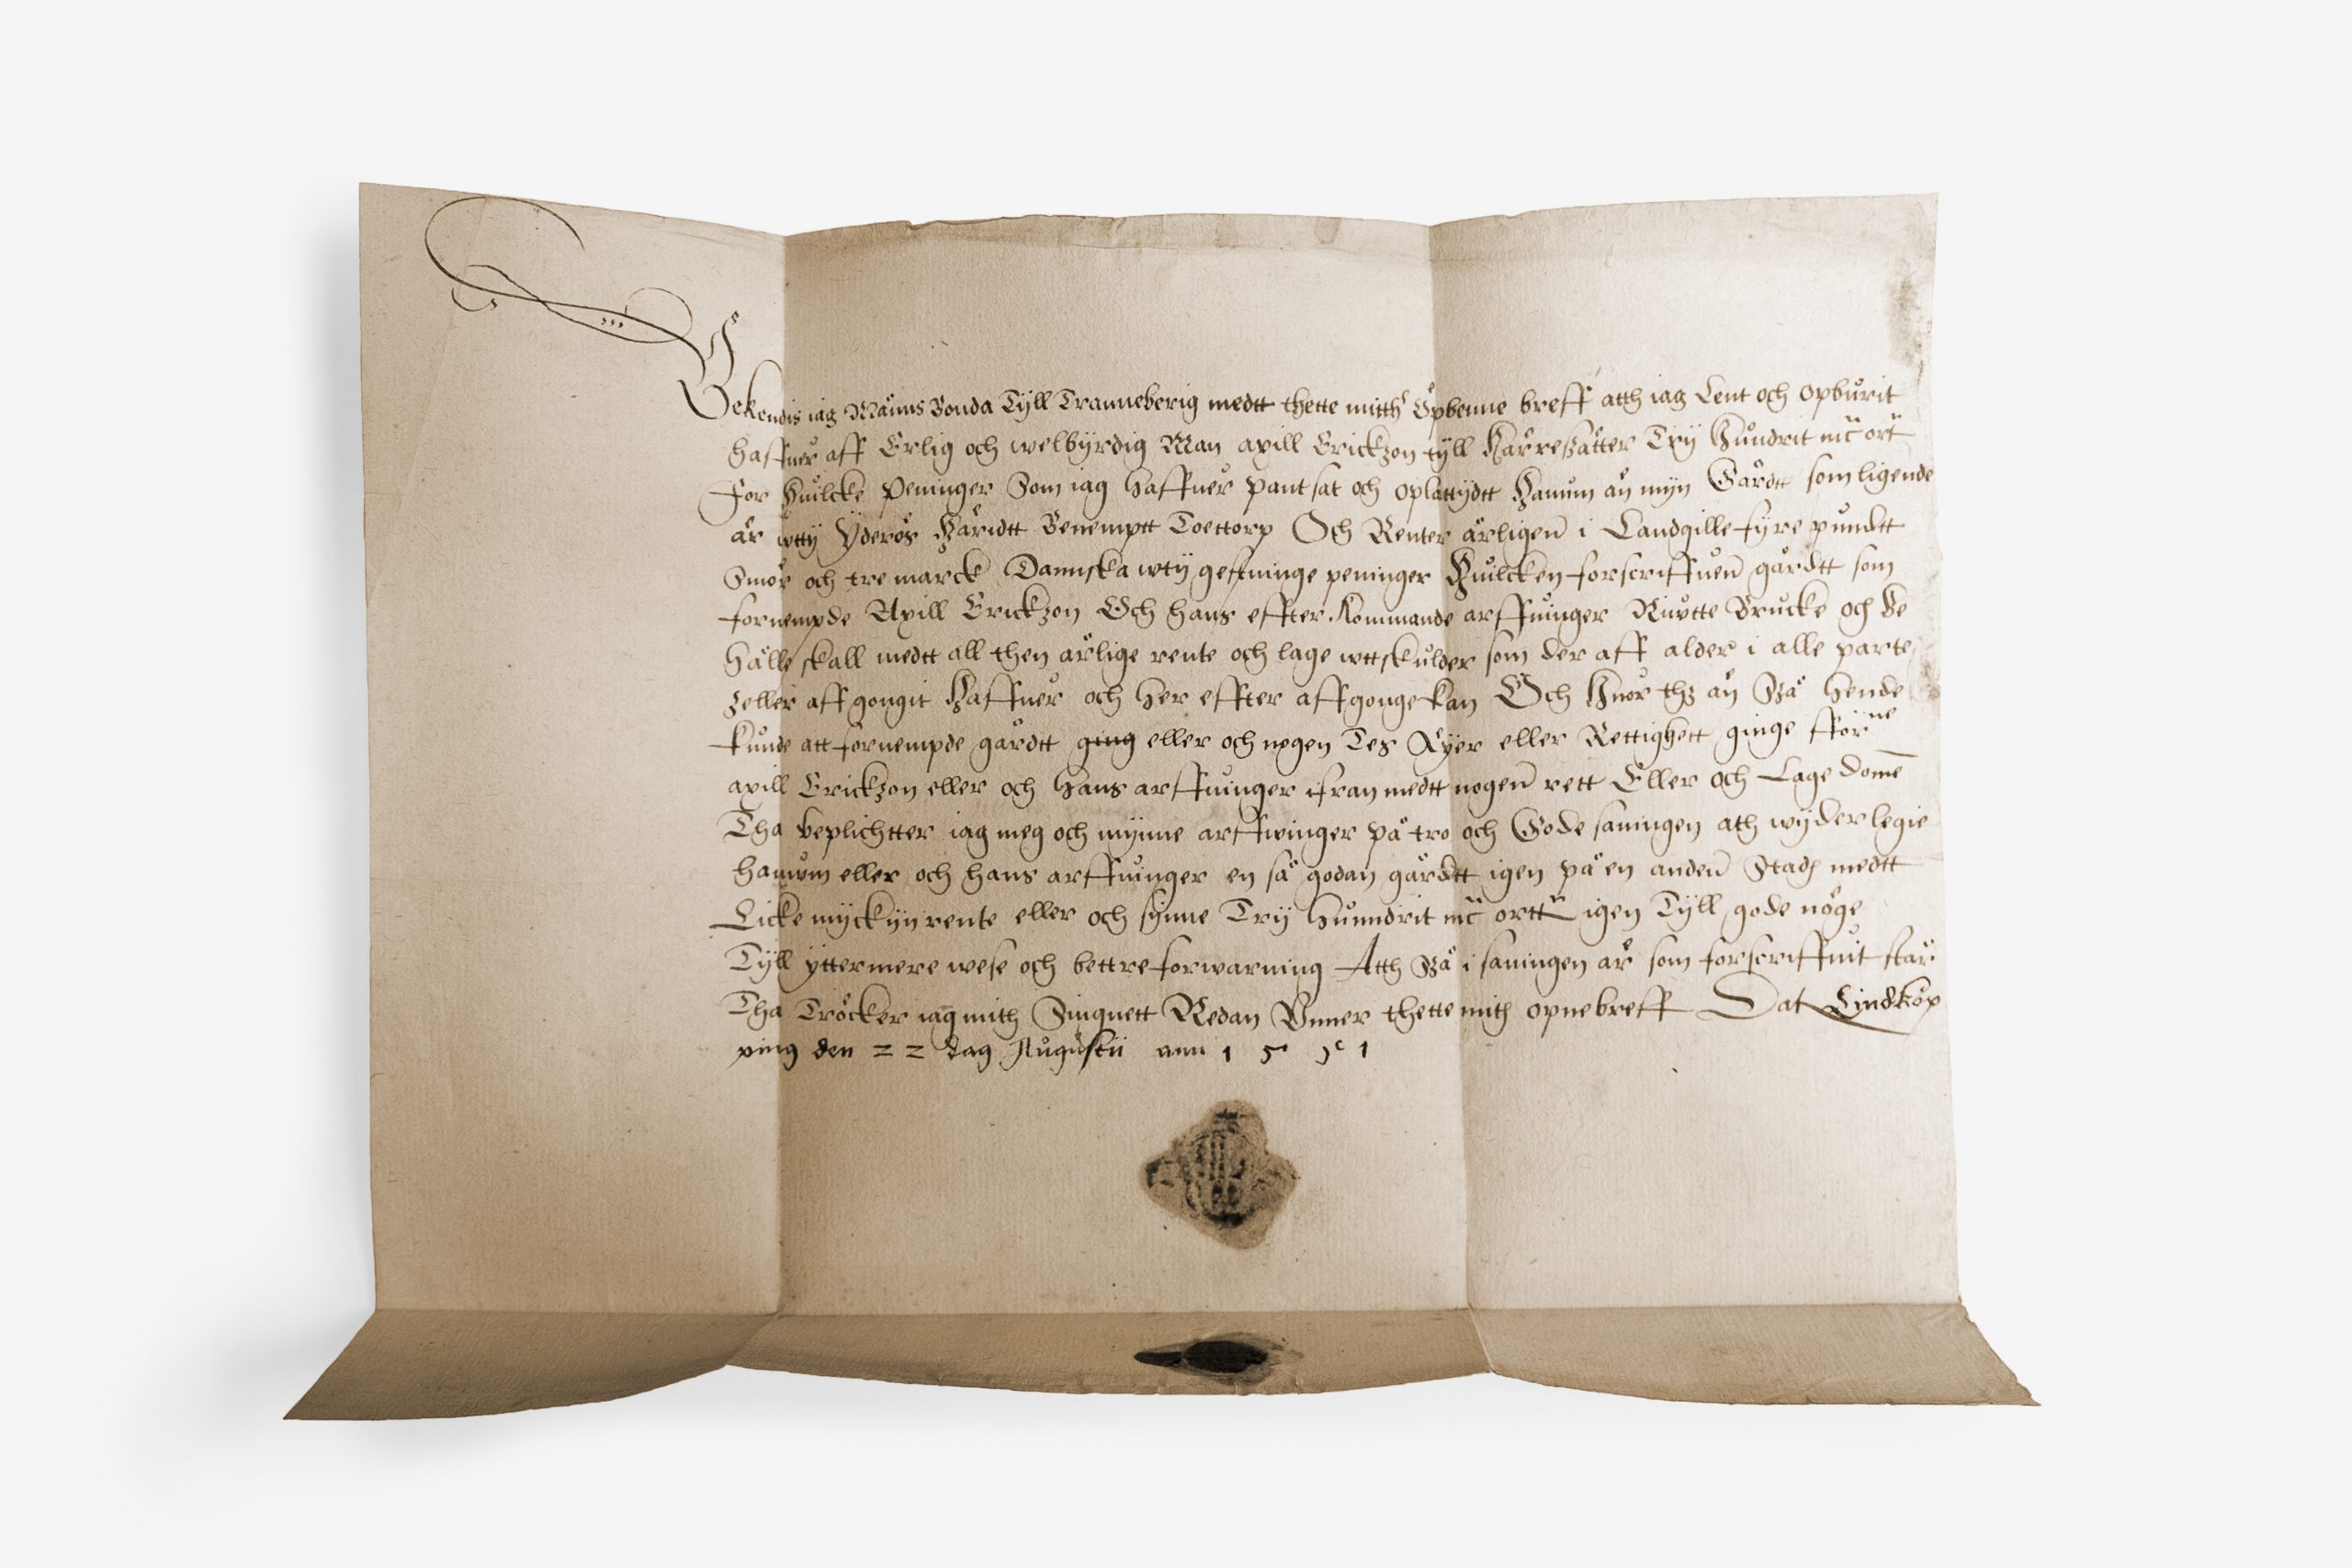 Bekendis iag Måuns Bonda Tyll Tranneberig medtt thette mitth Opbenne breff atth iag Lent och opburit
haffuer aff Erlig och welbyrdig Man axill Erickzon tyll Härressätter Try Hundrit mc ort
For huilcke Peninger Som iag haffuer pantsat och oplattydtt hanum än myn Gårdtt som ligende
är wtty Yderös Häridtt Benemptt Toettorp Och Renter årligen i Landgille fyre pundtt
Smör och tre marck Dannska wty geffninge peninger Huilcken forscriffuen gårdtt som
fornempde Axill Erickzon Och hans effter kommande arffuinger Niutte Brucke och be
hålle skall medtt all then årlige rente och lage wttskulder som der aff alder i alle parte
zeller aff gongit haffuer och her effter affgonge kan Och huor thz än Så hende
kunde att fornempde gårdtt ging eller och nogen Tes Äyer eller Rettighett ginge fför ne
axill Erickzon eller och hans arffuinger ifran medtt nogen rett Eller och Lage dome
Tha beplichtter iag meg och mynne arffwinger på tro och Gode saningen ath wyderlegie
hanum eller och hans arffuinger en så godan gårdtt igen på en anden Stadh medtt
Licke myckyn rente eller och synne Try hunndrit mc ortt igen Tyll gode nöge
Tyll yttermere wese och bettre forwarning Atth Så i saningen är som forscriffuit står
Tha Tröcker iag mith Singnett Nedan Unner thette mith opne breff Dat Lindköp
ping den 22 dag Augustii ann